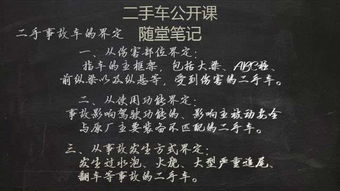 二手车公开课
随堂笔记
二手事故车的界定
一、从伤害部位界定：
指车的主框架，包括大梁、ABC柱、
前纵梁以及纵悬等，受到伤害的二手车。
二、从使用功能界定：
事故影响驾驶功能的、影响主被动安全
与原厂主要装备不匹配的二手车。
三、从事故发生方式界定：
发生过水泡、火烧、大型严重追尾、
翻车等事故的二手车。